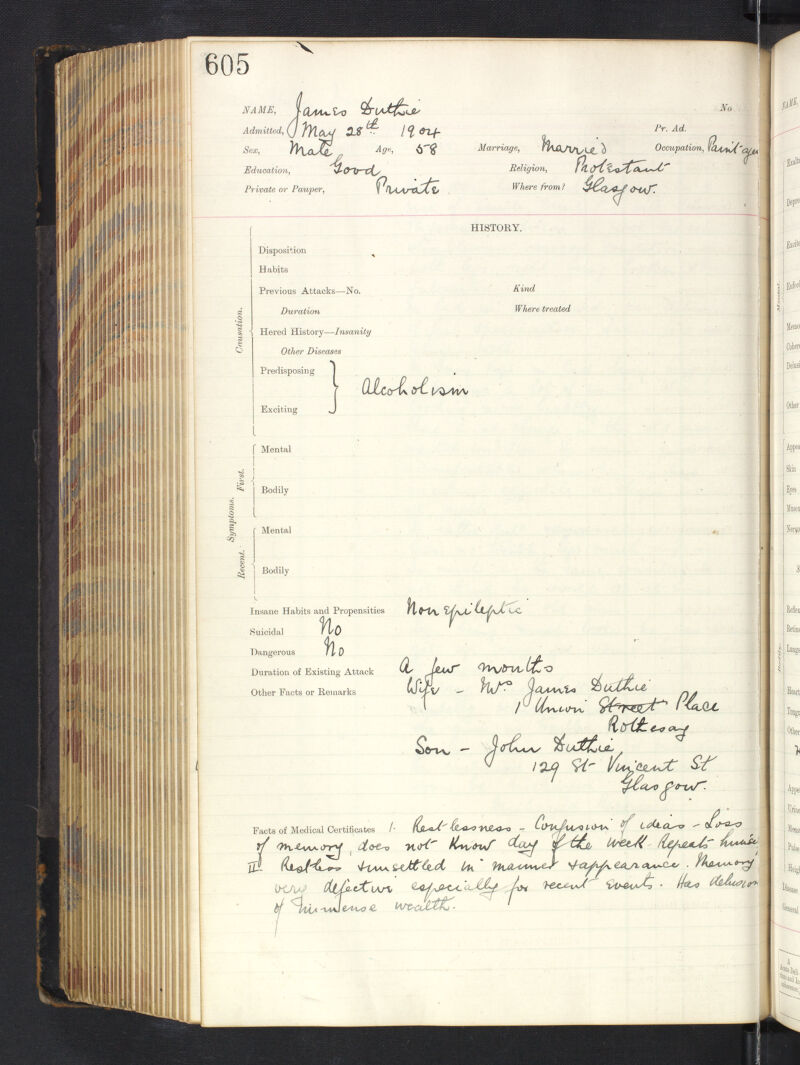 605
NAME, James Duthie No
Admitted, May 28th 1904 Pr. Ad.
Sex, Male Age, 58 Marriage, Married Occupation, Paint
Education, Good Religion, Protestant
Private or Pauper, Private Where from? Glasgow.
HISTORY.
Causation.
Disposition
Habits
Previous Attacks—No. Kind
Duration Where treated
Hered History—Insanity
Other Diseases
Predisposing
Alcoholism
Exciting
Symptoms.
First.
Mental
Bodily
Recent.
Mental
Bodily
Insane Habits and Propensities Non epileptic
Suicidal No
Dangerous No
Duration of Existing Attack A few months
Other Facts or Remarks Wife - Mrs James Duthie
1 Union Street Place
Rothesay
Son - John Duthie
129 St Vincent St
Glasgow.
Facts of Medical Certificates 1. Restlessness - Confusion of ideas - Loss
of memory, does not know day of the week. Repeats
II Restless & unsettled in manner & appearance. Memory
very defective especially for recent events. Has delusion
of immense wealth.